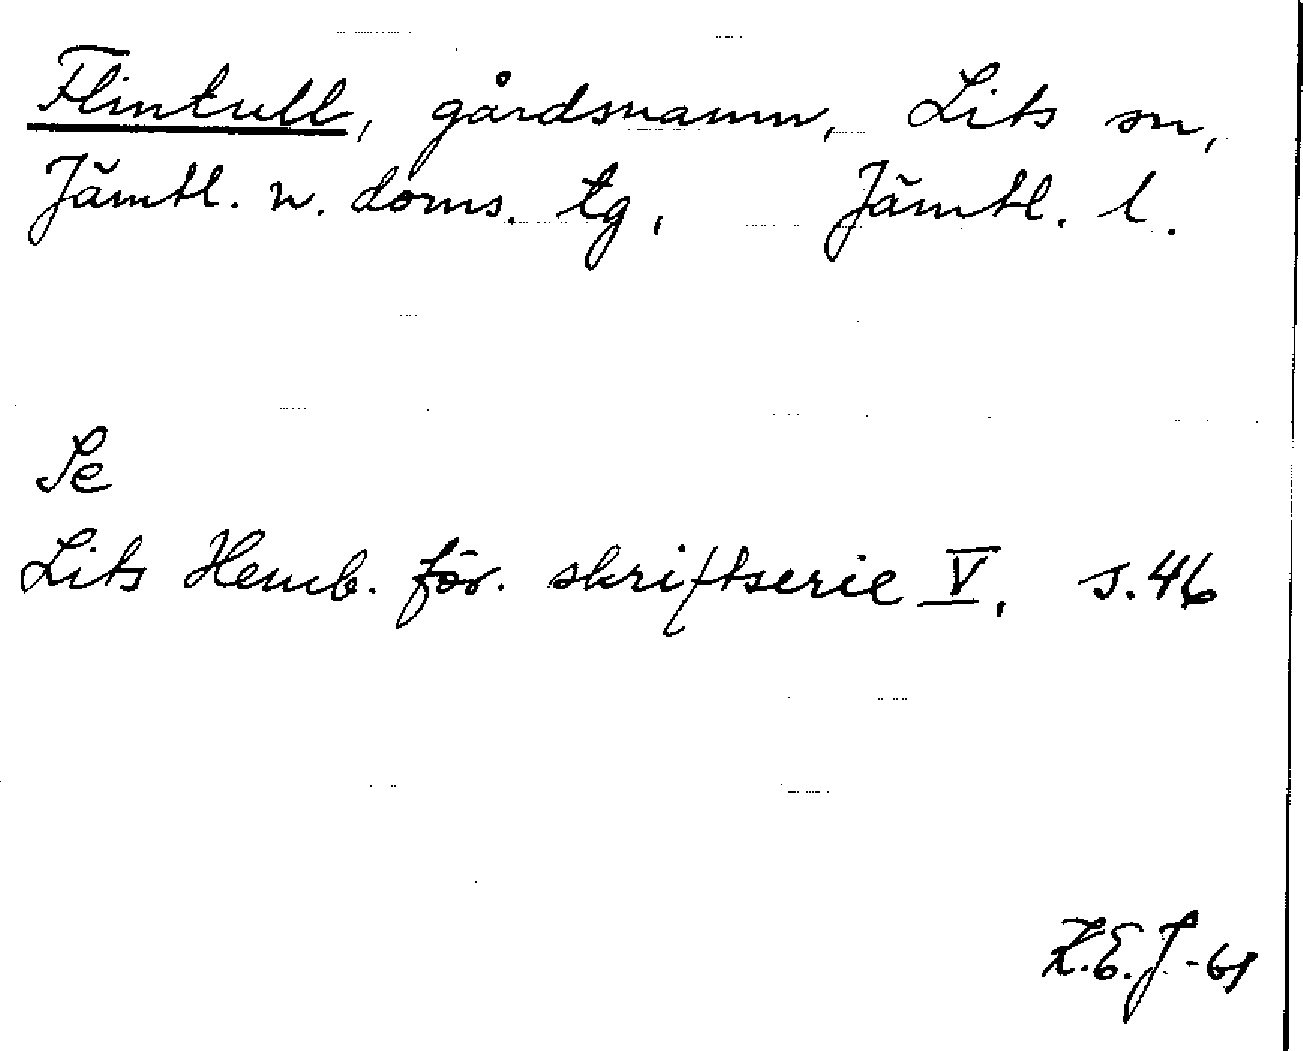 Flintull, gårdsnamn, Lits sn,
Jämtl. n. doms. tg, Jämtl. l.
Se
Lits Hemb. för. skriftserie V, s. 46
K.E.J-61